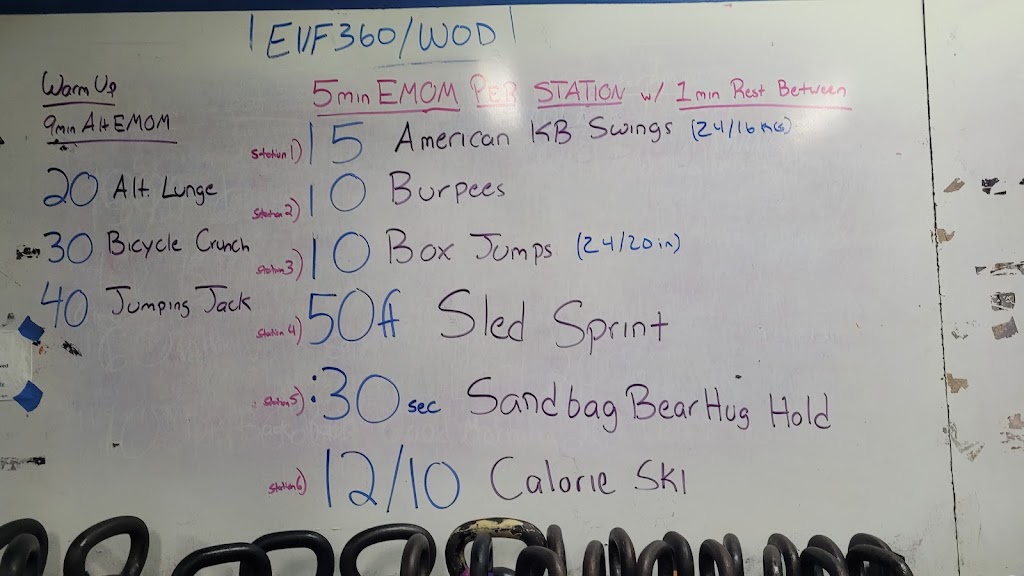 EVF360/WOD
Warm Up
9min Alt EMOM
20 Alt. Lunge
30 Bicycle Crunch
40 Jumping Jack
5min EMOM PER STATION w/ 1min Rest Between
Station 1) 15 American KB Swings (24/16KG)
Station 2) 10 Burpees
Station 3) 10 Box Jumps (24/20in)
Station 4) 50ft Sled Sprint
Station 5) :30 sec Sandbag Bear Hug Hold
Station 6) 12/10 Calorie SKI